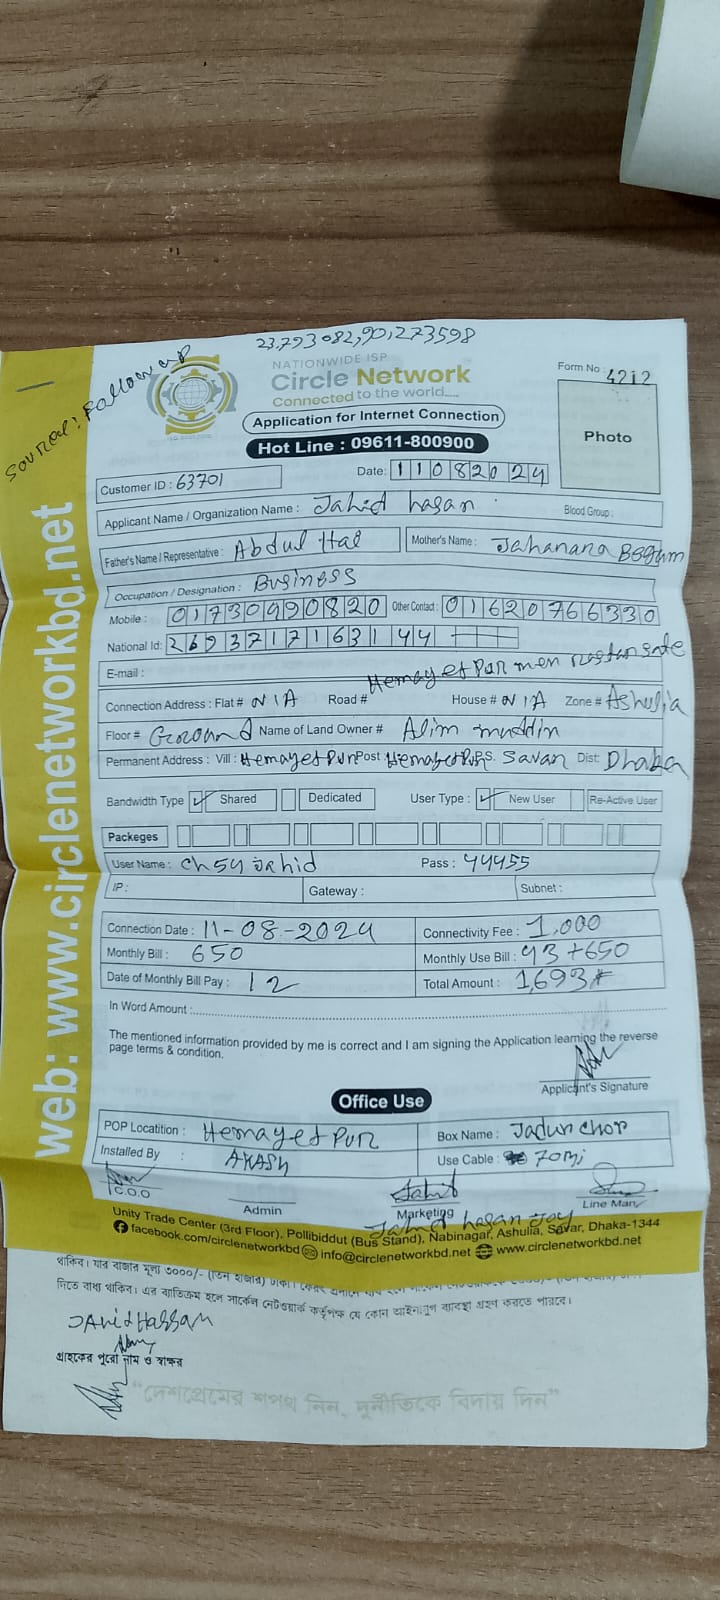 23.793082,90.273598
Source: Follow up
NATIONWIDE ISP
Circle Network
Connected to the world.....
Application for Internet Connection
Hot Line : 09611-800900
Form No : 4212
Photo
Customer ID : 63701
Date: 11082024
Applicant Name / Organization Name : Jahid hasan
Blood Group :
Father's Name / Representative : Abdul Hai
Mother's Name : Jahanara Begum
Occupation / Designation : Business
Mobile : 01730990820 Other Contact : 01620766330
National Id: 2693717163144
E-mail :
Hemayet Pur
Connection Address : Flat # N/A Road # House # N/A Zone # Ashulia
Floor # Ground Name of Land Owner # Alim muddin
Permanent Address : Vill : Hemayet Pur Post Hemayet Pur P.S. Savar Dist: Dhaka
Bandwidth Type ✓ Shared Dedicated User Type : ✓ New User Re-Active User
Packeges
User Name : Pass : 44455
IP : Gateway : Subnet :
Connection Date : 11-08-2024 Connectivity Fee : 1,000
Monthly Bill : 650 Monthly Use Bill : 43+650
Date of Monthly Bill Pay : 12 Total Amount : 1,693
In Word Amount :
The mentioned information provided by me is correct and I am signing the Application learning the reverse
page terms & condition.
Applicant's Signature
Office Use
POP Locatition : Hemayet Pur Box Name : Jadur chor
Installed By : AKASH Use Cable : 70mi
C.O.O Admin Marketing Line Man
Jahid hasan Joy
Unity Trade Center (3rd Floor), Pollibiddut (Bus Stand), Nabinagar, Ashulia, Savar, Dhaka-1344
facebook.com/circlenetworkbd info@circlenetworkbd.net www.circlenetworkbd.net
web: www.circlenetworkbd.net
থাকিব। যার বাজার মূল্য ৩০০০/- (তিন হাজার) টাকা।
দিতে বাধ্য থাকিব। এর ব্যতিক্রম হলে সার্কেল নেটওয়ার্ক কর্তৃপক্ষ যে কোন আইনানুগ ব্যবস্থা গ্রহণ করতে পারবে।
JAhid Hassan
গ্রাহকের পুরো নাম ও স্বাক্ষর
“দেশপ্রেমের শপথ নিন, দুর্নীতিকে বিদায় দিন”